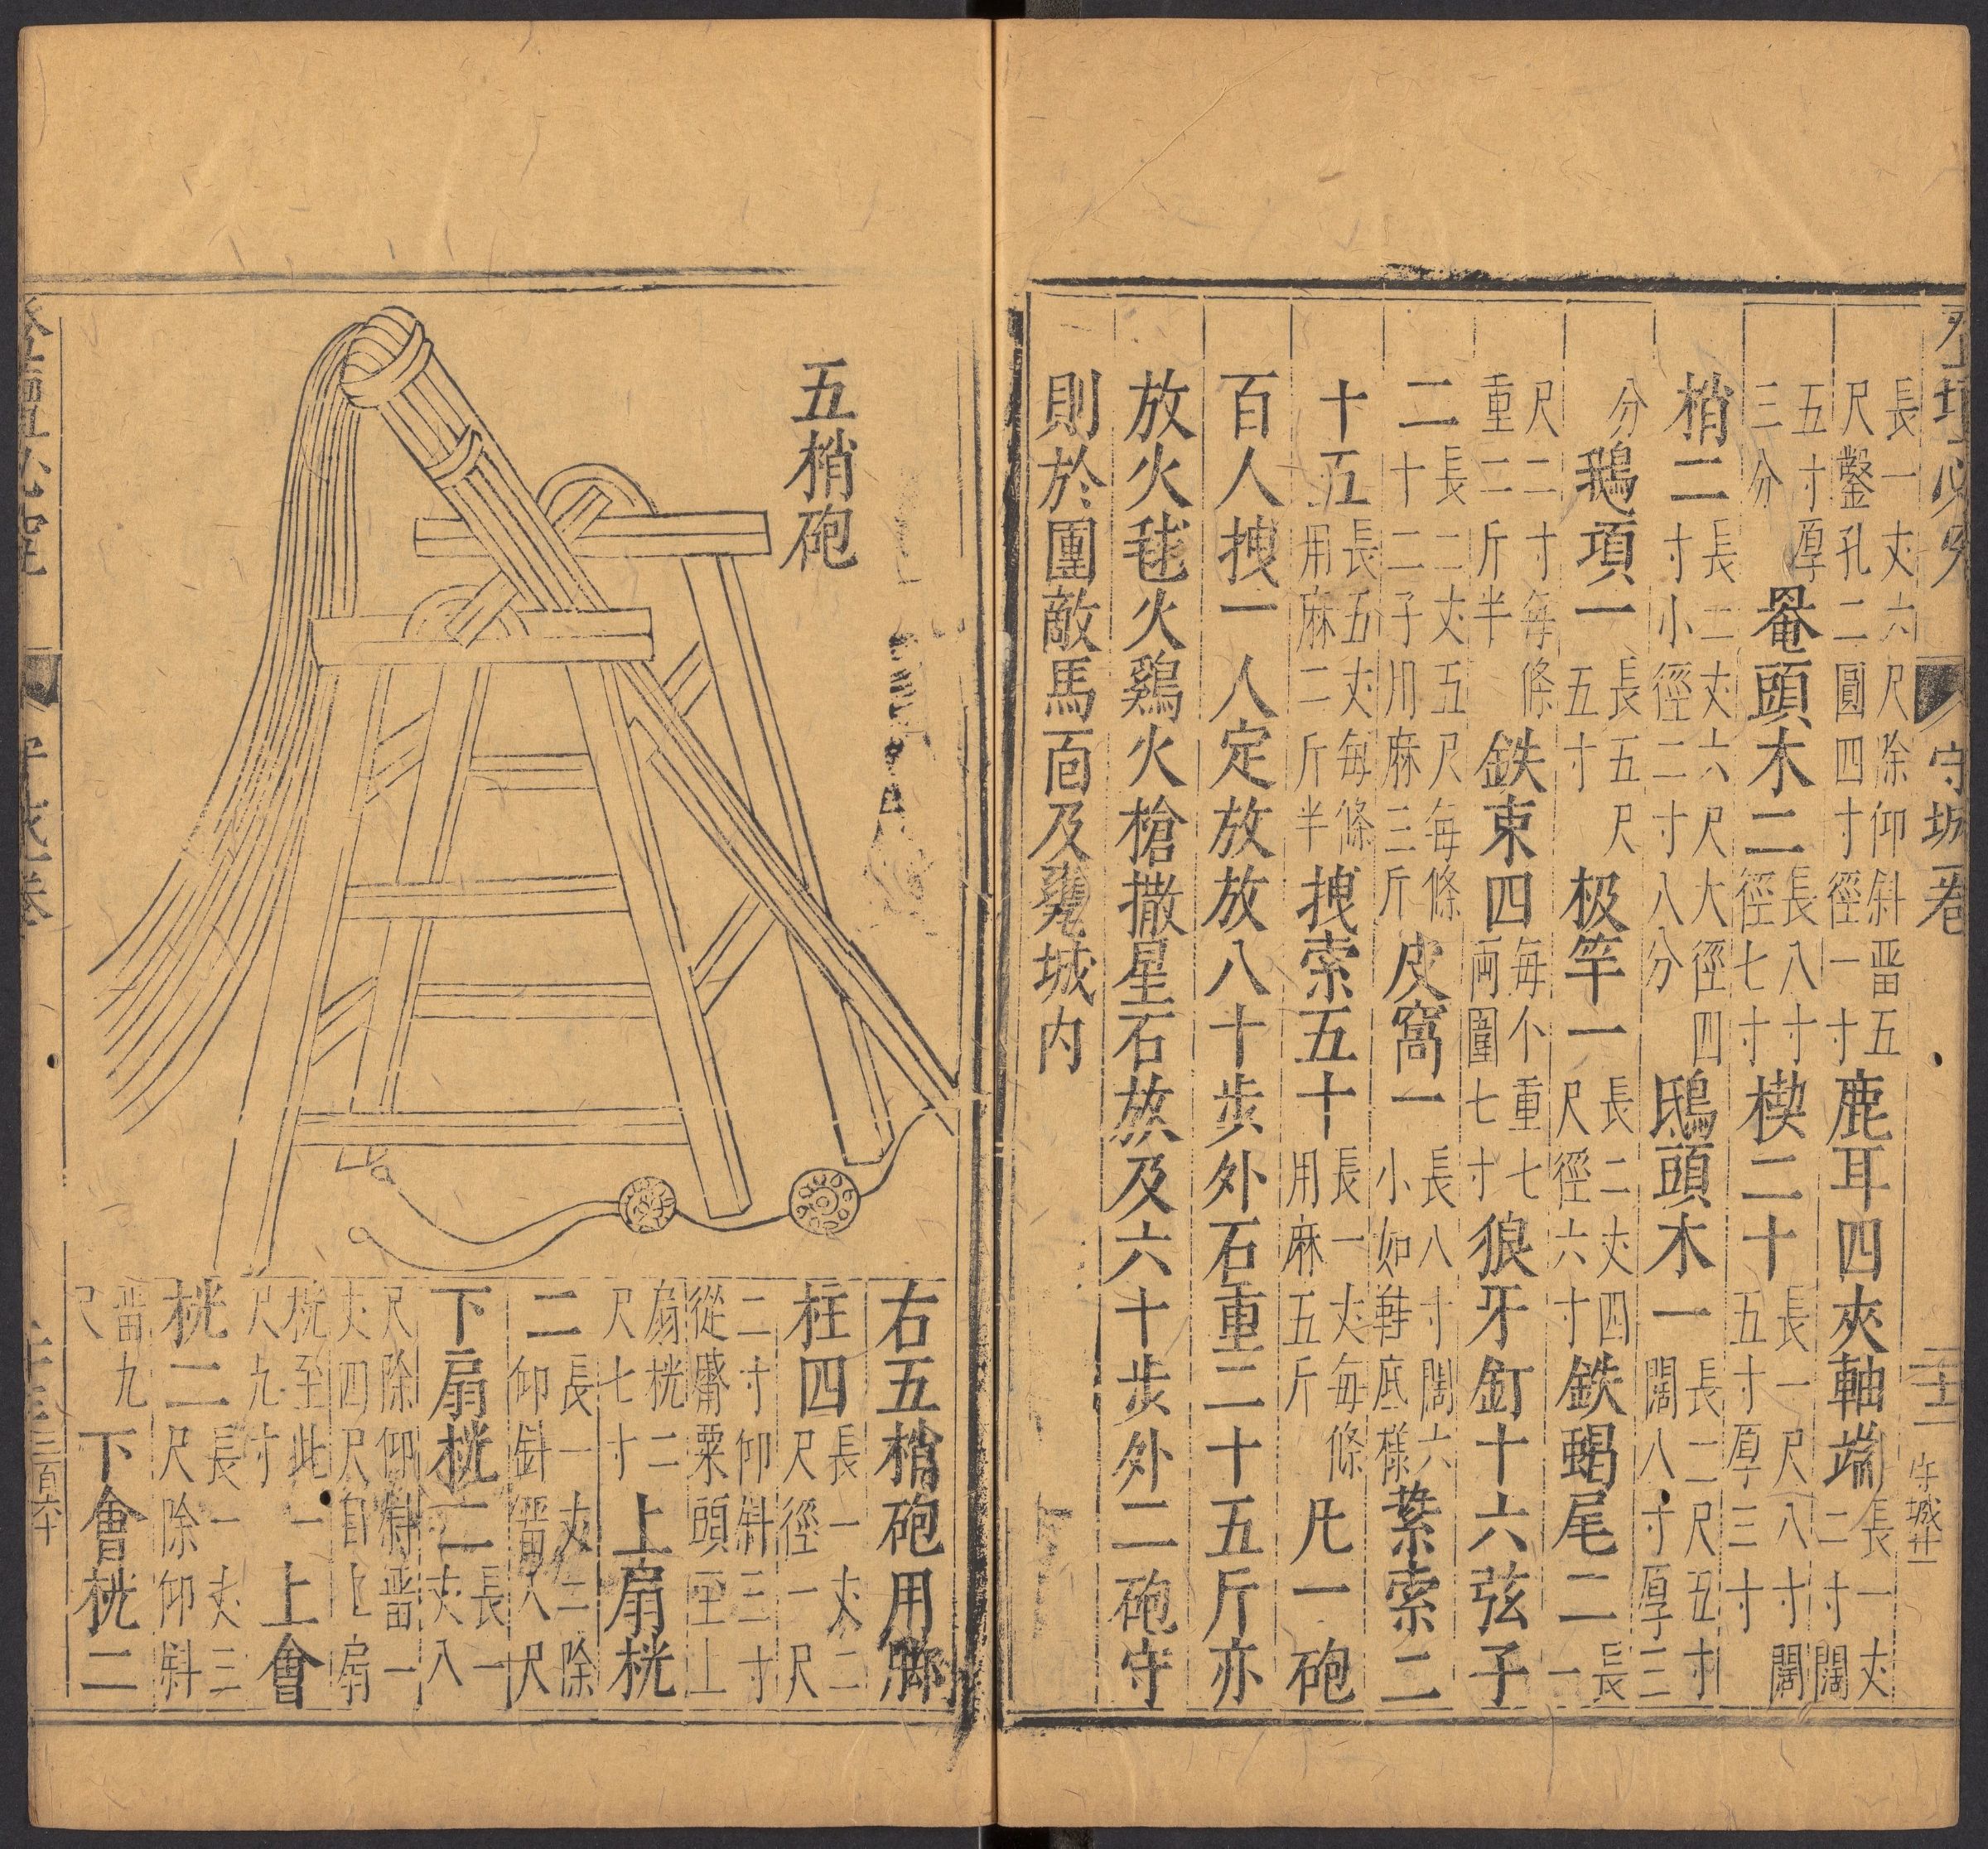 守城一卷
長一丈六尺除仰斜罾五尺鑿孔二圓四寸徑一寸鹿耳四夾軸端長一丈二寸闊
五寸厚三分罨頭木二長八寸徑七寸楔二十長一尺八寸闊五寸厚三寸
梢二長二丈六尺大徑四寸小徑二寸八分鴟頭木一長二尺五寸闊八寸厚三
分鵝項一長五尺五寸极竿一長二丈四尺徑六寸鉄蝎尾二長一
尺二寸每條重二斤半鉄束四每个重七兩圍七寸狼牙釘十六弦子
二長二丈五尺每條十二子用麻三斤皮窩一長八寸闊六小如鞋底樣紮索二
十五長五丈每條用麻二斤半拽索五十長一丈每條用麻五斤凡一砲
百人拽一人定放放八十步外石重二十五斤亦
放火毬火鷄火槍撒星石放及六十步外二砲守
則於圍敵馬面及甕城内
五梢砲
右五梢砲用脚
柱四長一丈二尺徑一尺
二寸仰斜三寸從罾粟頭至上
扇桄二尺七寸上扇桄
二長一丈二除仰斜罾八尺
下扇桄二長一丈八
尺除仰斜罾一丈四尺自上扇
桄至此一尺九寸上會
桄二長一丈三尺除仰斜
罾九尺下會桄二